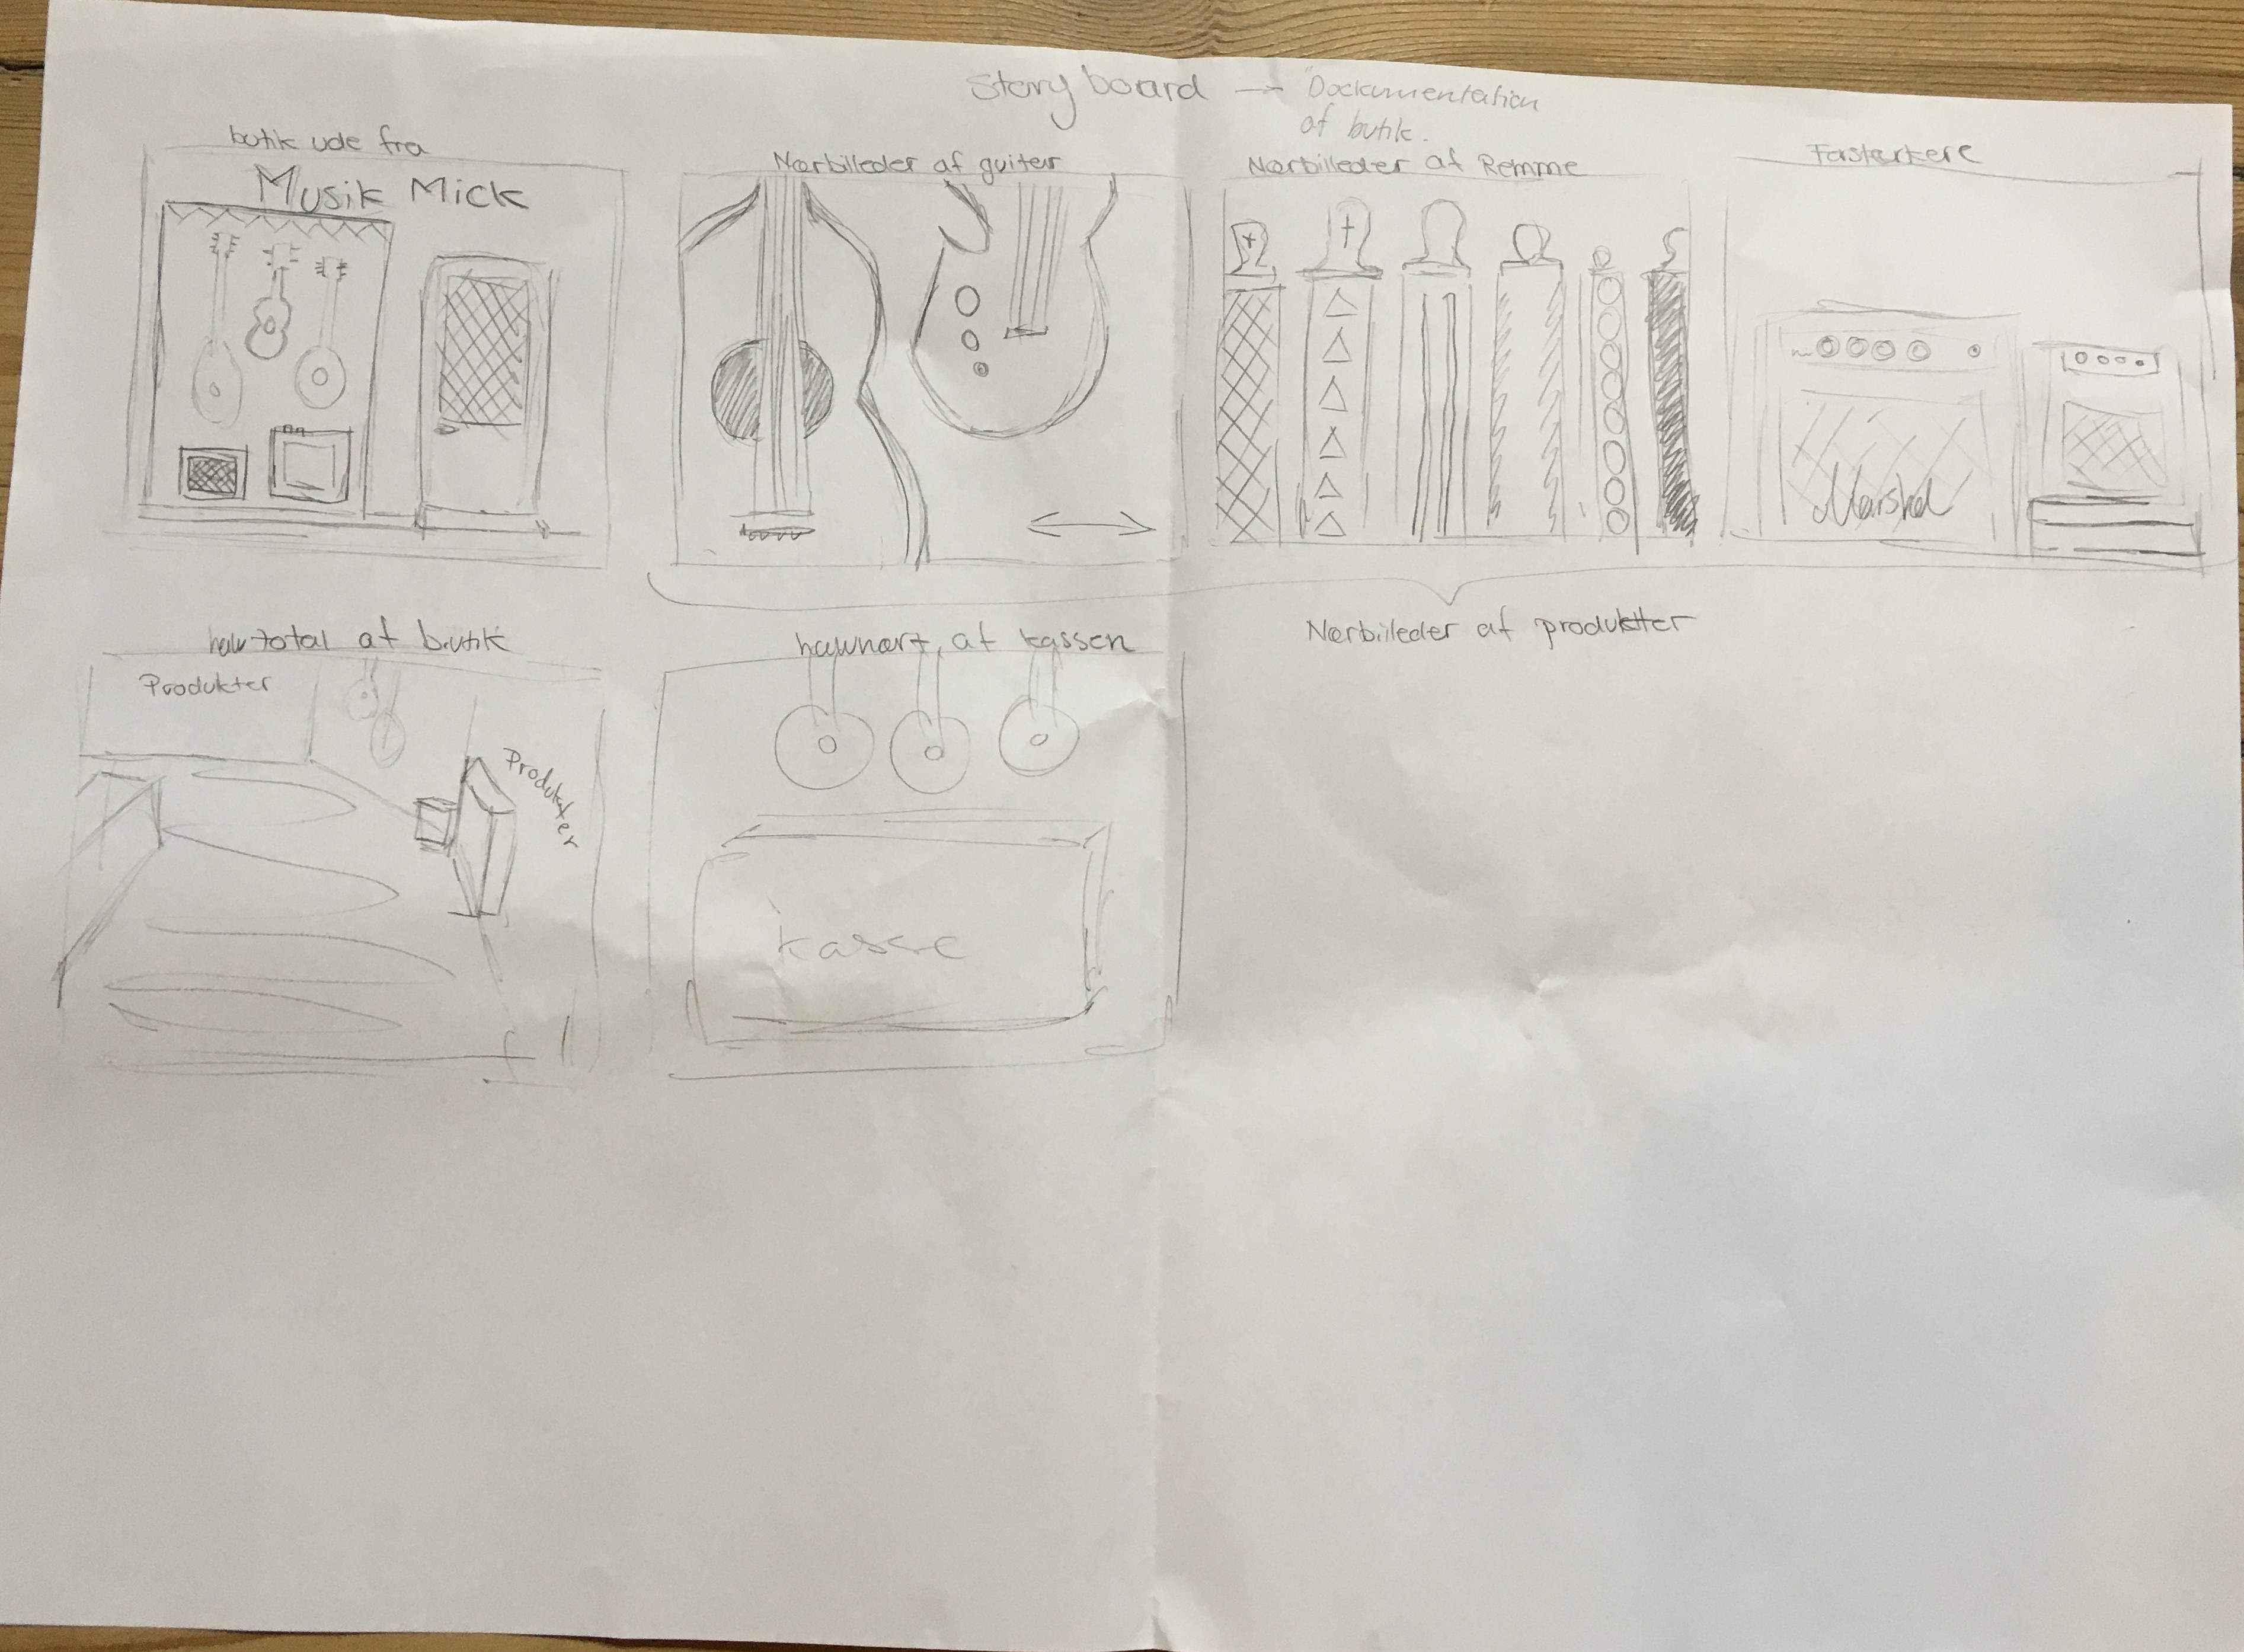 Story board → Dockumentation
af butik.
butik ude fra
Musik Mick
Nærbilleder af guitar
Nærbilleder af Remme
Fasterkere
Marshel
Nærbilleder af produktter
total af butik
Produkter
Produkter
af kassen
kasse